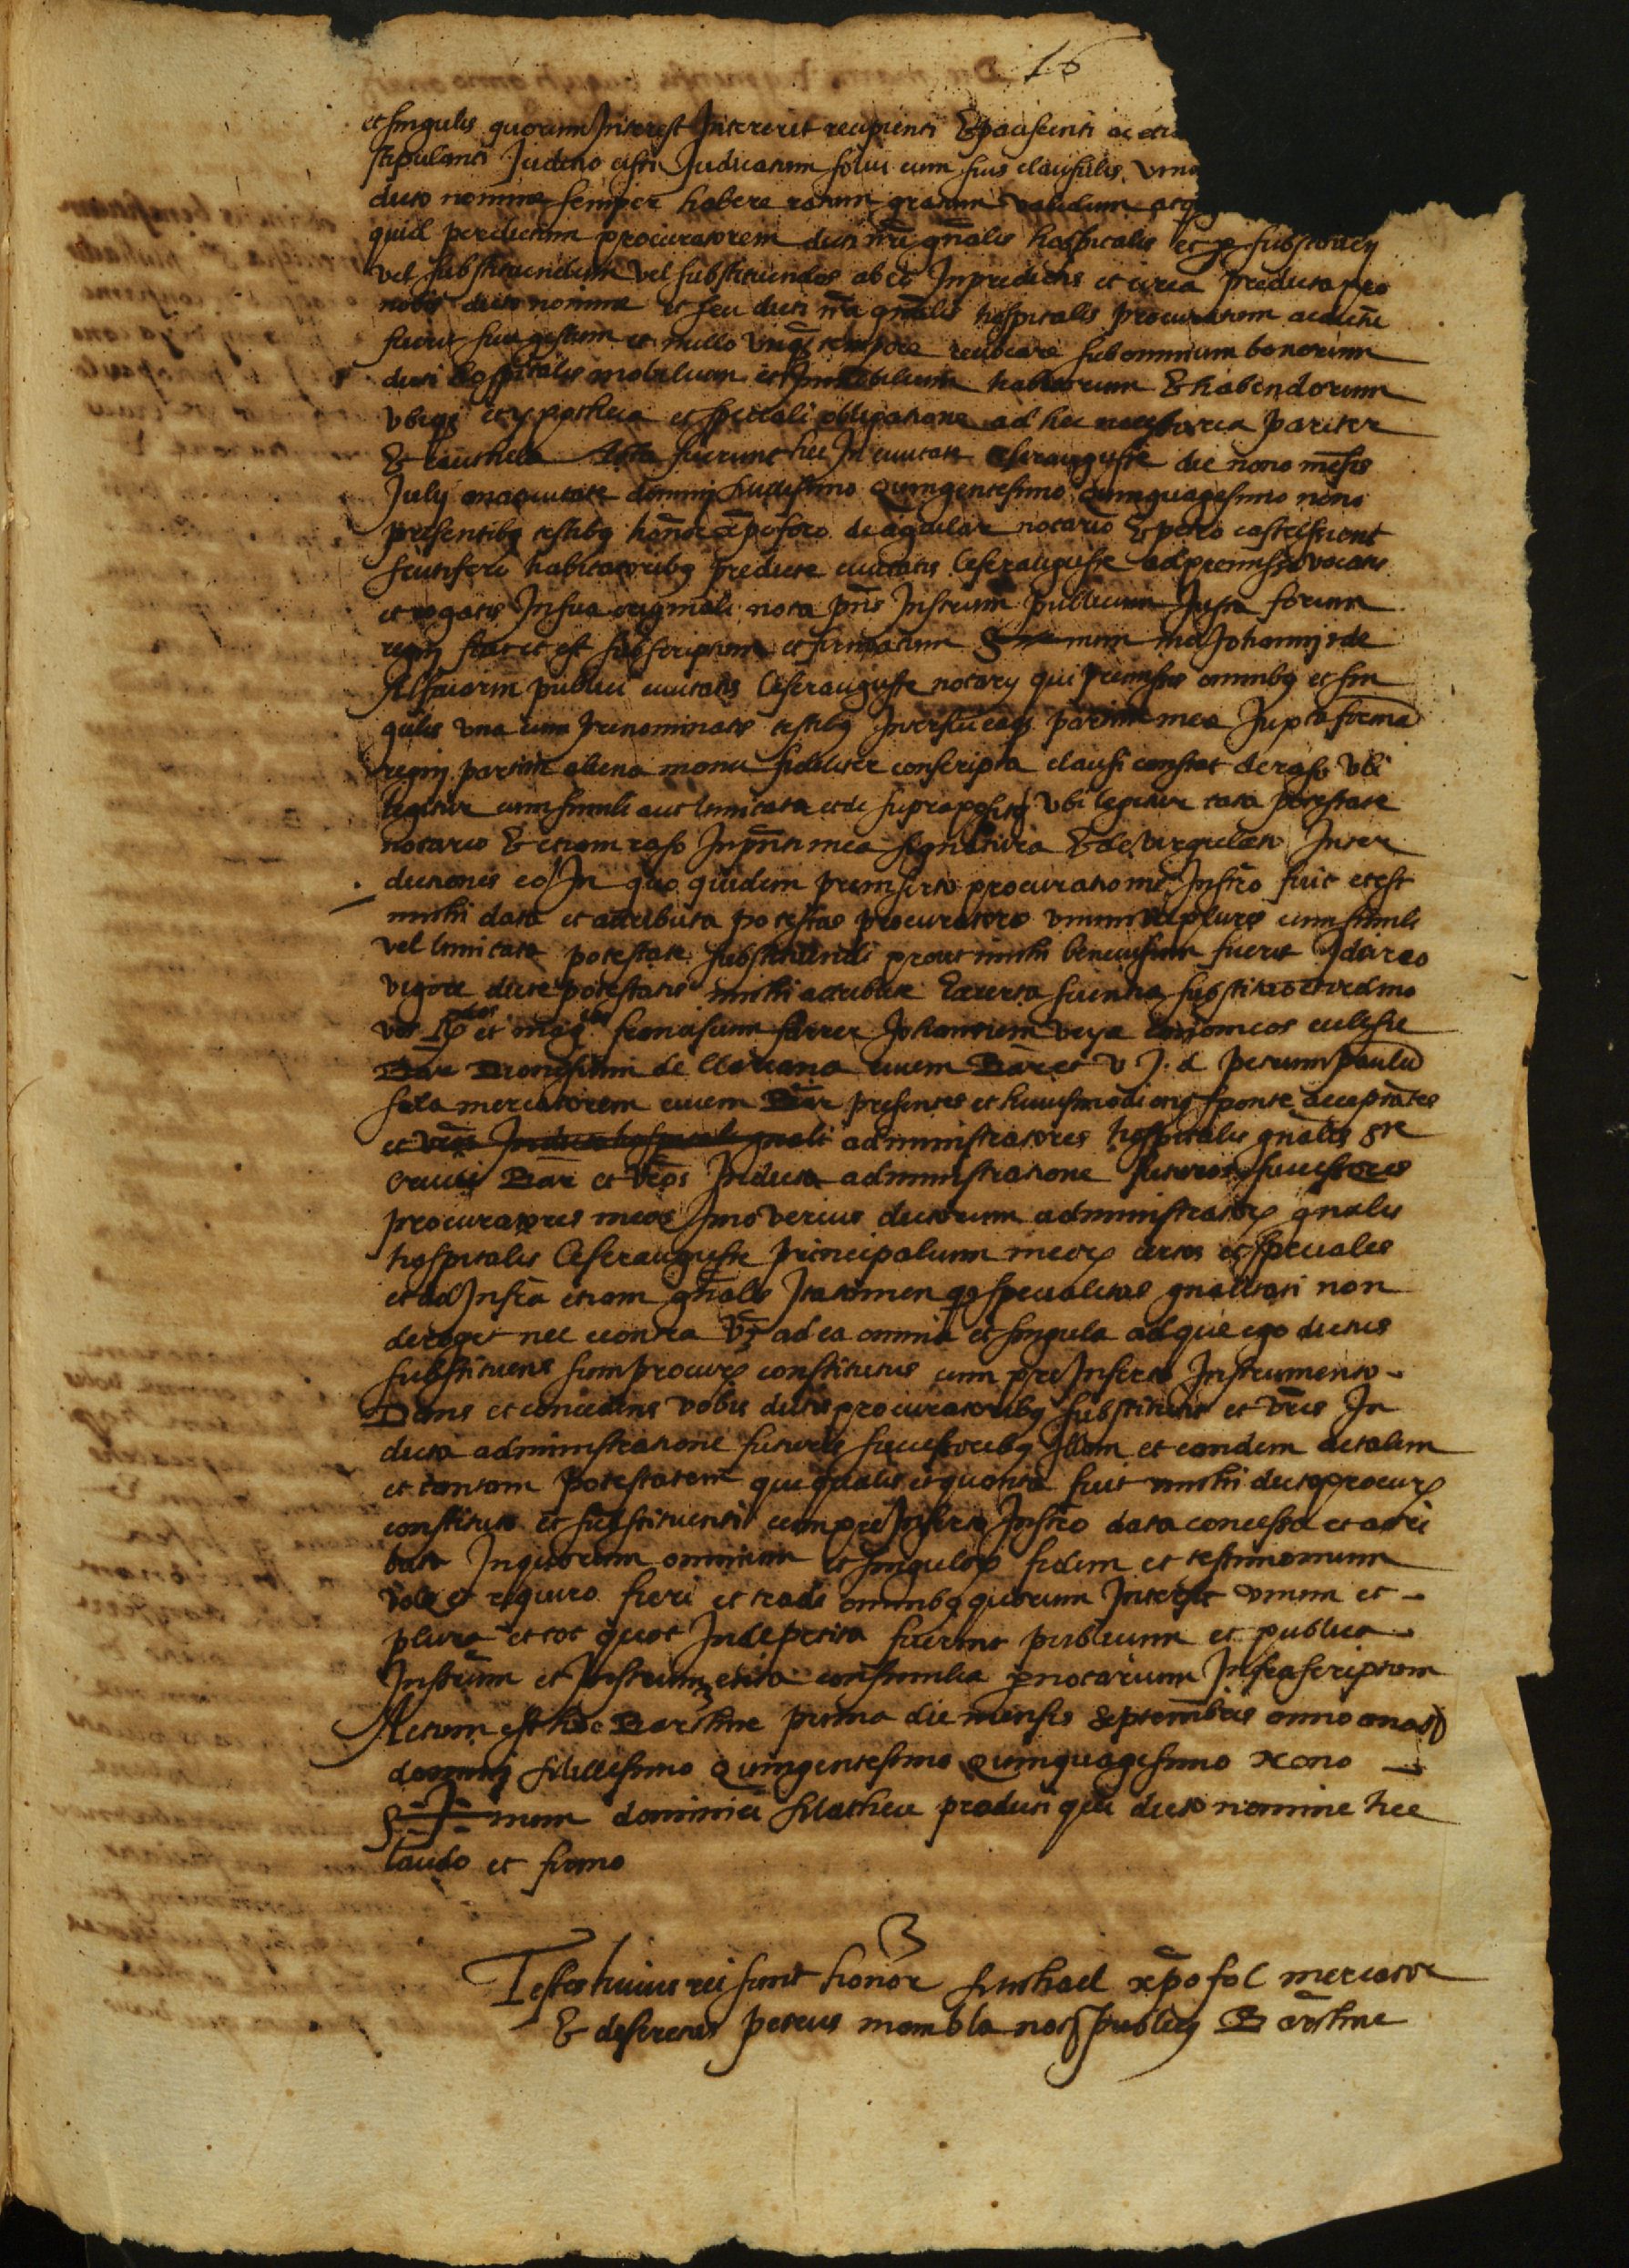 16
et singulis quorum Interest Intererit recipienti & paciscenti ac etia
stipulanti Judicio sisti Judicatum solui cum suis clausulis
dicto nomine semper habere ratum gratum validum atq
quid per dictum procuratorem dicti nri gnalis hospitalis et
vel substituendum vel substituendos ab eo Inpredictis et circa predicta pro
nobis dicto nomine et seu dicti nri gnalis hospitalis procuratum actum
fuerit seu gestum et nullo vnq tempore reuocare sub omnium bonorum
dicti hospitalis mobilium et Immobilium habitorum & habendorum
vbiq et ypotheca et speciali obligatione ad hec necessaria pariter
& cauthela Acta fuerunt hec In ciuitate Cesarauguste die nono mesis
July anatiuitate dominj Millesimo Quingentesimo Quinquagesimo nono
presentibq testibq xpoforo de aguilar notario & petro
scutifero habitatoribq predicte ciuitatis Cesarauguste adpremissa vocatis
et rogatis Insua originali nota pns Instrum publicum Juxta forum
regnj stat et est subscriptum et firmatum Sig num mei Johannis de
Alfaiarin publici ciuitatis Cesarauguste notary qui premissis omnibq et sin
gulis vna cum prenominatis testibq Interfui eaq partim mea Juxta forma
regnj partim aliena manu fideliter conscripta clausi constat de raso vbi
legitur cum simili aut limitata et de supraposito vbi legitur tata potestate
notario & etiam raso Inpnti mea signatura & de virgulato Inter
dictiones eo In quo quidem preinserto procurationis Instro fuit et est
michi data et attributa potestas procuratore vnum vel plures cum simili
vel limitata potestate substituendi prout michi beneuisum fuerit Idcirco
vigore dicte potestatis michi attribute Excerta scientia substituo et
vos Rdos et magcos franciscum ferrer Johannem veya canonicos ecclesie
Bar Dionysium de Clariana ciuem Bar et v J. d petrum paulu
sala mercatorem ciuem Bar presentes et huiusmodi onq sponte acceptates
et vros In dicto hospitali gnali administratores hospitalis gnalis ste
crucis Bar et vros Indicta administratione futuros successores
procuratores meos Imo verius dictorum administrator gnalis
hospitalis Cesarauguste principalium meor certos et speciales
et ad Infra etiam gnales Itatamen q specialitas gnalitati non
deroget nec econtra vz ad ea omnia et singula adque ego dictus
substituens sum procur constitutus cum preInserto Instrumento
Dans et concedens vobis dictis procuratoribq substitutis et vris In
dicta administratione futuris successoribq Illam et eandem actalem
et tantam potestatem que qualis et quanta fuit michi dicto procur
constituto et substituenti cum preInserto Instro data concessa et attri
buta Inquorum omnium et singulor fidem et testimonium
volo et requiro fieri et tradi omnibq quorum Intersit vnum et
plura et tot quot Inde petita fuerint publicum et publica
Instrum et Instrumenta consimilia pnotarium Infrascriptum
Actum est hoc Barchne prima die mensis Septembris anno anat
dominj Millesimo Quingentesimo Quinquagesimo Nono
Sig num dominici Mathei predicti qui dicto nomine hec
laudo et firmo
Testes huius rei sunt honor Michael xpofol mercator
& petrus mambla not publicq Barchne